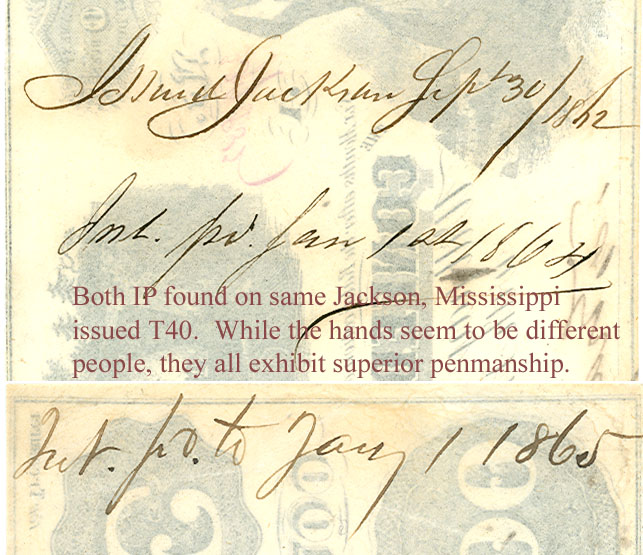 Issued Jackson Sept 30/1862
Int. pd. Jan 1st 1864
Both IP found on same Jackson, Mississippi
issued T40.  While the hands seem to be different
people, they all exhibit superior penmanship.
Int. pd. to Jany 1 1865